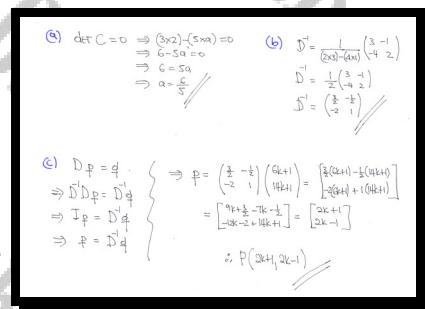 (a) det C = 0 ⇒ (3×2)-(5×a) = 0
⇒ 6-5a = 0
⇒ 6 = 5a
⇒ a = 6/5
(b) D⁻¹ = 1/((2×3)-(4×1)) (3 -1
-4 2)
D⁻¹ = 1/2 (3 -1
-4 2)
D⁻¹ = (3/2 -1/2
-2 1)
(c) Dp = q
⇒ D⁻¹Dp = D⁻¹q
⇒ Ip = D⁻¹q
⇒ p = D⁻¹q
⇒ p = (3/2 -1/2
-2 1) (6k+1
14k+1) = [3/2(6k+1) - 1/2(14k+1)
-2(6k+1) + 1(14k+1)]
= [9k+3/2-7k-1/2
-12k-2+14k+1] = [2k+1
2k-1]
∴ P(2k+1, 2k-1)